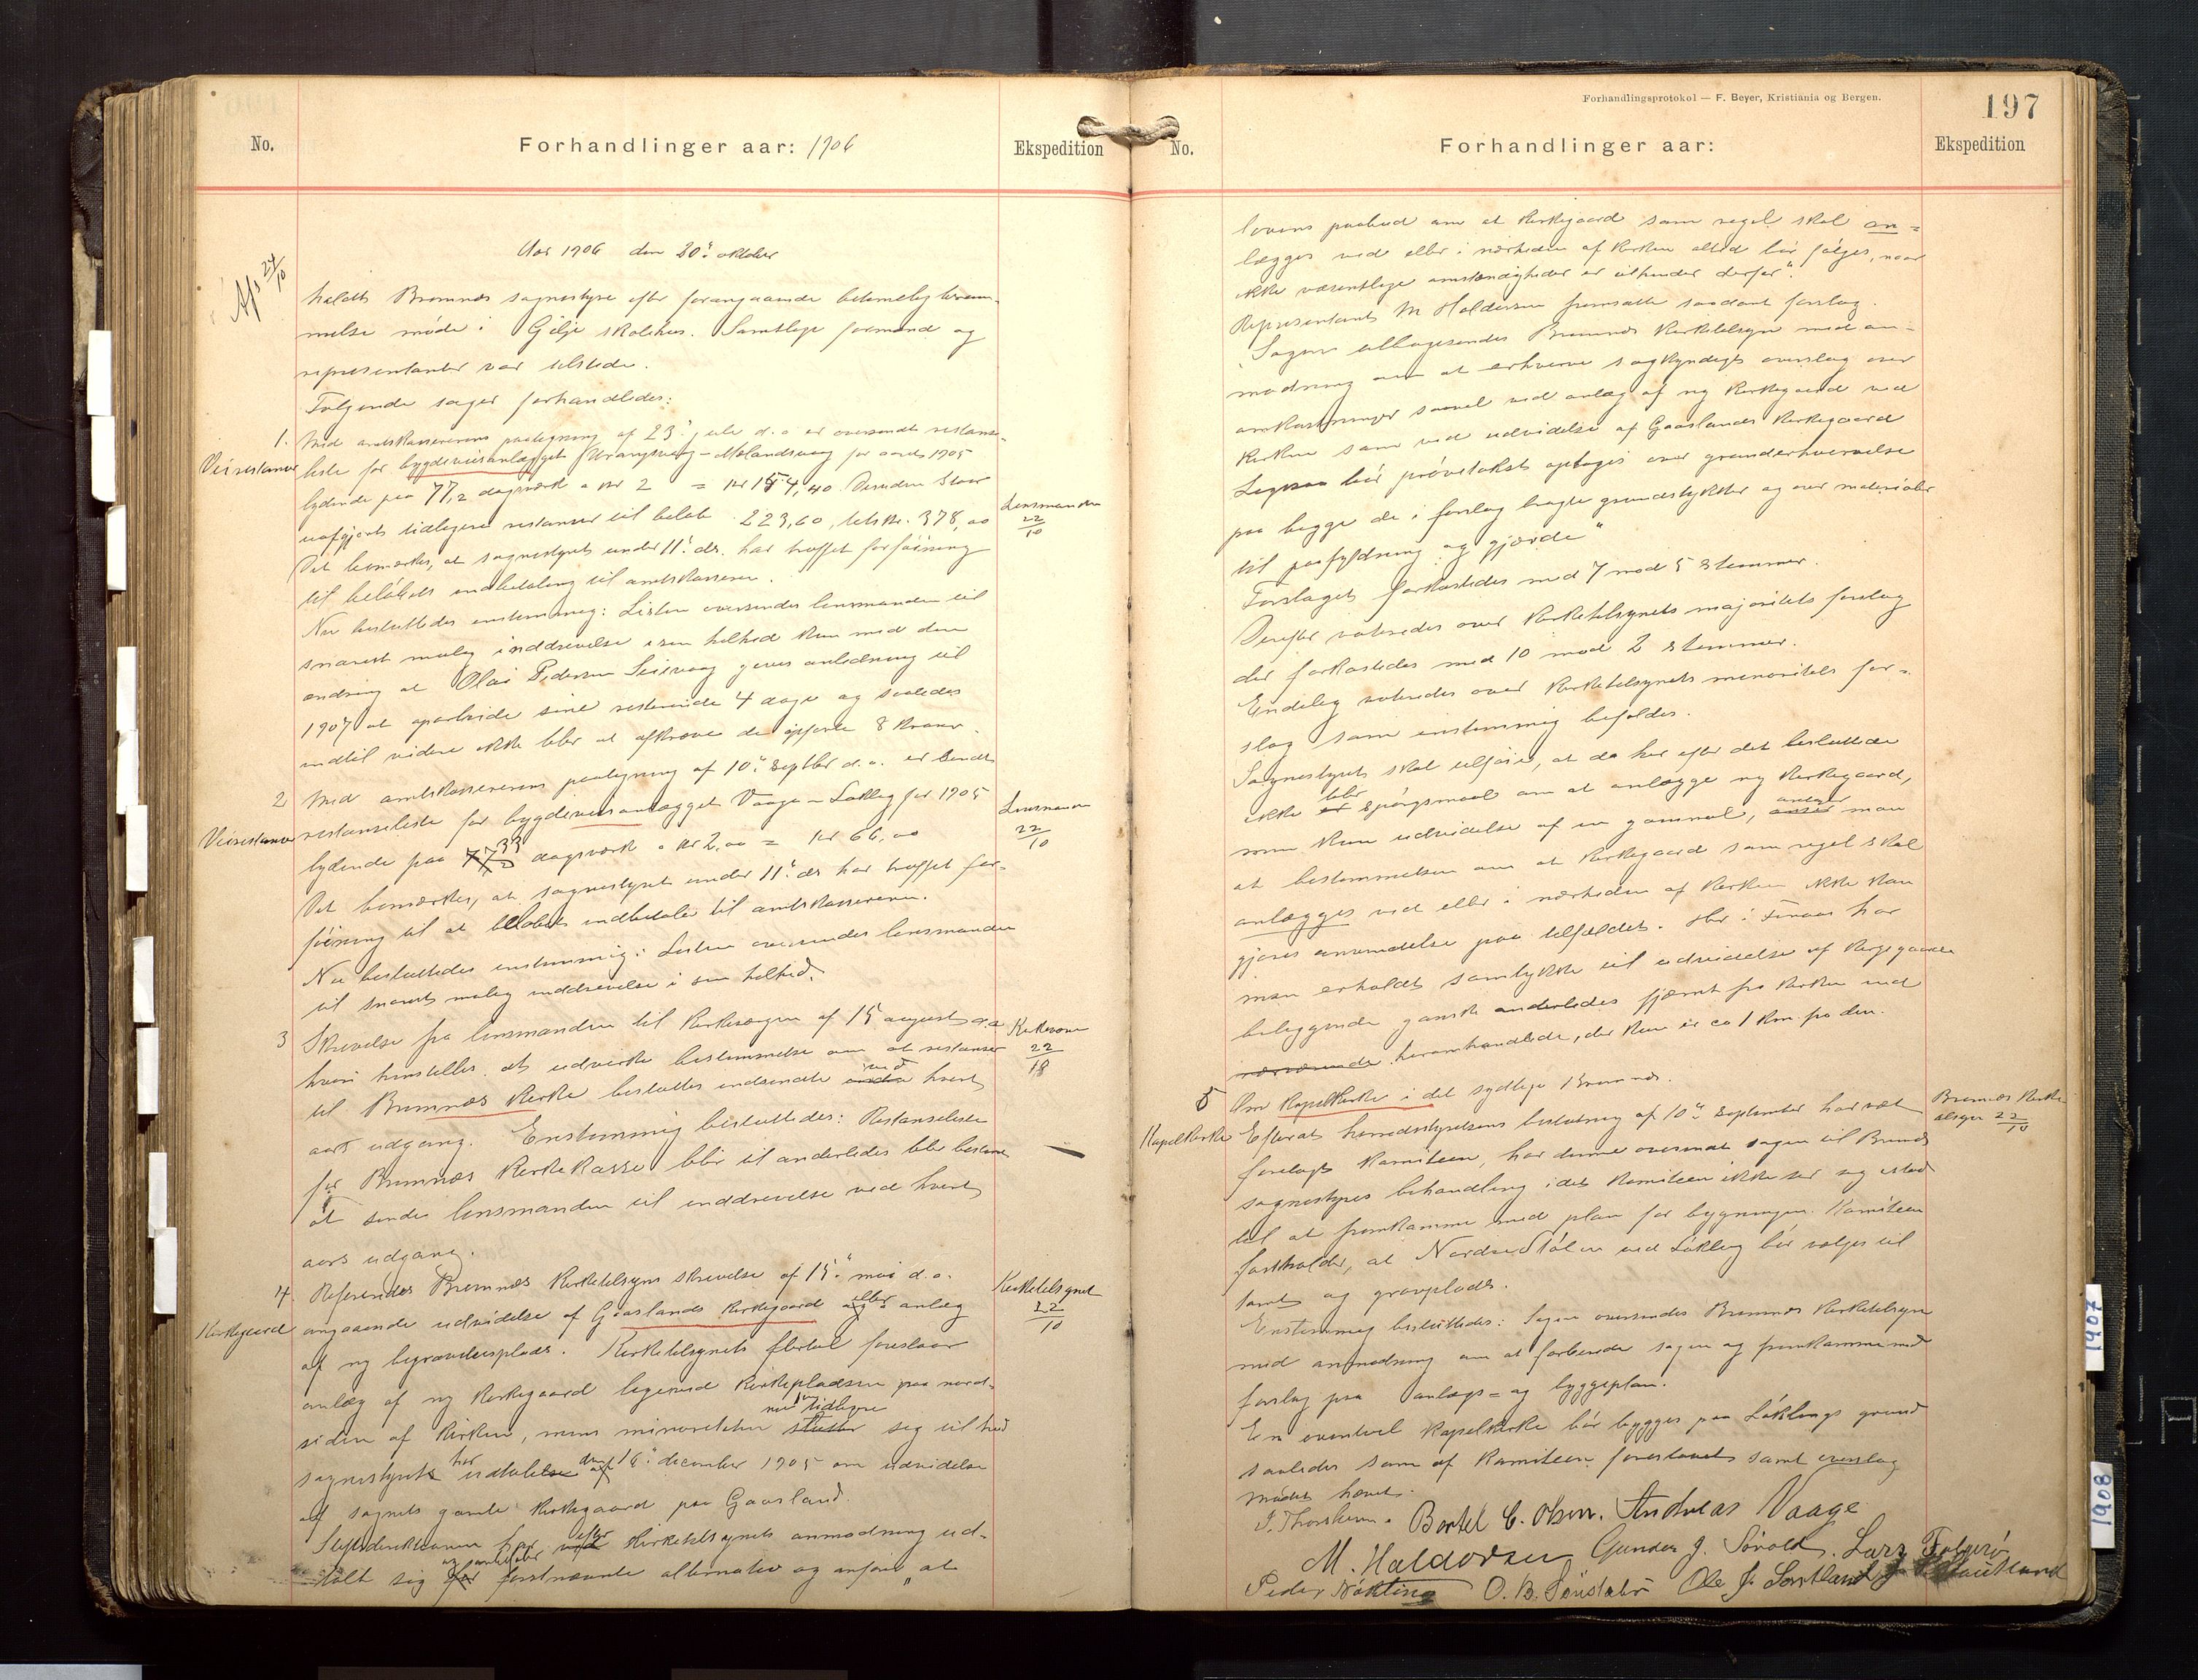 No.
Forhandlinger aar: 1906
Ekspedition
Afs 24/10
Aar 1906 den 20de oktober
holdtes Bremnes sognestyre efter forangaaende betimelig beram-
melse møde i Gilje skolehus. Samtlige formænd og
repræsentanter var tilstede.
Følgende sager forhandledes:
1. Med amtskassererens paategning af 23de juli d.a. er oversendt restanse-
Veirestanse
liste for bygdeveisanlægget Urangsvaag-Mælandsvaag for aaret 1905
lydende paa 77,2 dagsværk a kr 2 = kr 154,40. Desuden staar
uafgjort tidligere restanser til beløb 223,60, tils. kr. 378,00
Lensmanden
22/10
Det bemærkes, at sognestyret under 11te ds. har truffet forføining
til beløbets indbetaling til amtskassereren.
Nu besluttedes enstemmig: Listen oversendes lensmanden til
snarest mulig inddrivelse i sin helhed kun med den
ændring at Olai Pedersen Seivaag gives anledning til
1907 at oparbeide sine resterende 4 dage og saaledes
indtil videre ikke blir at afkræve de opførte 8 kroner.
2 Med amtskassererens paategning af 10de septbr d.a. er sendt
Veirestanse
restanseliste for bygdeveisanlægget Vaage-Løkling for 1905
lydende paa 33 dagsværk a kr 2,00 = kr 66,00
Lensmanden
22/10
Det bemærkes, at sognestyret under 11te ds har truffet for-
føining til at beløbet indbetales til amtskassereren.
Nu besluttedes enstemmig: Listen oversendes lensmanden
til snarest mulig inddrivelse i sin helhed.
3 Skrivelse fra lensmanden til kirkeværgen af 15 august d.a
hvori henstilles at udvirke bestemmelse om at restanser
Kirkeværgen
22/10
til Bremnæs Kirke besluttes indsendte ved hvert
aars udgang. Enstemmig besluttedes: Restanselisten
for Bremnæs Kirkekasse blir til anderledes blir bestemt
at sende lensmanden til inddrivelse ved hvert
aars udgang.
4. Refereredes Bremnæs Kirketilsyns skrivelse af 15de mai d.a.
Kirkegaard
angaaende udvidelse af Gaaslands kirkegaard eller anlæg
Kirketilsynet
22/10
af ny begravelsesplads. Kirketilsynets flertal foreslaar
anlæg af ny kirkegaard ligeved kirkepladsen paa nord-
siden af kirken, mens minoriteten slutter sig til hvad
sognestyret har udtalt den 18de december 1905 om udvidelse
af sognets gamle kirkegaard paa Gaasland.
Stiftsdirektionen har efter Kirketilsynets anmodning ud-
talt sig og anbefaler førstnævnte alternativ og anfører „at

Forhandlingsprotokol — F. Beyer, Kristiania og Bergen.
197
No.
Forhandlinger aar:
Ekspedition
lovens paabud om at Kirkegaard som regel skal an-
lægges ved eller i nærheden af kirken altid bør følges, naar
ikke væsentlige omstændigheder er tilhinder derfor".
Repræsentant M Haldorsen fremsatte saadant forslag.
„Sagen tilbagesendes Bremnæs Kirketilsyn med an-
modning om at erhverve sagkyndigt overslag over
omkostninger saavel ved anlæg af ny kirkegaard ved
kirken som ved udvidelse af Gaaslands kirkegaard
Ligesaa bør prøvetakst optages over grunderhvervelse
paa begge de i forslag bragte grundstykker og over materialer
til paafyldning og gjærde"
Forslaget forkastedes med 7 mod 5 stemmer.
Derefter voteredes over Kirketilsynets majoritets forslag
der forkastedes med 10 mod 2 stemmer.
Endelig voteredes over Kirketilsynets minoritets for-
slag som enstemmig bifaldes.
Sognestyret skal tilføie, at da her efter det besluttede
ikke blir spørgsmaal om at anlægge ny kirkegaard,
men kun udvidelse af en gammel, antager man
at bestemmelsen om at kirkegaard som regel skal
anlægges ved eller i nærheden af kirken ikke kan
gjøres anvendelse paa tilfældet. Her i Finaas har
man erholdt samtykke til udvidelse af kirkegaarde
beliggende ganske anderledes fjærnt fra kirken end
nærværende heromhandlede, der kun er ca 1 km. fra den.
5 Om Kapelkirke i det sydlige Bremnæs.
Kapelkirke
Bremnæs Kirke-
tilsyn 22/10
Efterat herredsstyrelsens beslutning af 10de september har vært
forelagt komiteen, har denne oversendt sagen til Bremnes
sognestyres behandling idet komiteen ikke ser sig istand
til at fremkomme med plan for bygningen. Komiteen
fastholder, at Nordre Støl ved Løkling bør vælges til
tomt og gravplads.
Enstemmig besluttedes: Sagen oversendes Bremnæs Kirketilsyn
med anmodning om at forberede sagen og fremkomme med
forslag paa anlægs- og byggeplan.
En eventuel Kapelkirke bør bygges paa Løklings grund
saaledes som af Komiteen foreslaaet samt overslag
Mødet hævet.
P. Thorsheim. Bortel C. Olsen. Andreas Vaage
M. Haldorsen Gunder J. Sørvold. Lars Folgerø
Peder Nøkling O. B. Sønstabø Ole J. Sortland
1907
1908